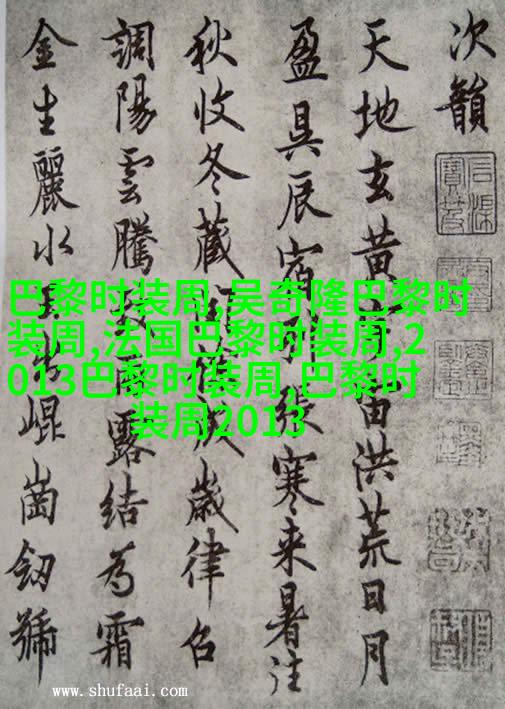 次韻
天地玄黄宙洪荒日月
盈昃辰宿列張寒来暑往
秋收冬藏成歲律召
調陽雲騰露結為霜
金生麗水崐崗劒號
巴黎时装周,吴奇隆巴黎时
装周,法国巴黎时装周,2
013巴黎时装周,巴黎时
装周2013
www.shufaai.com